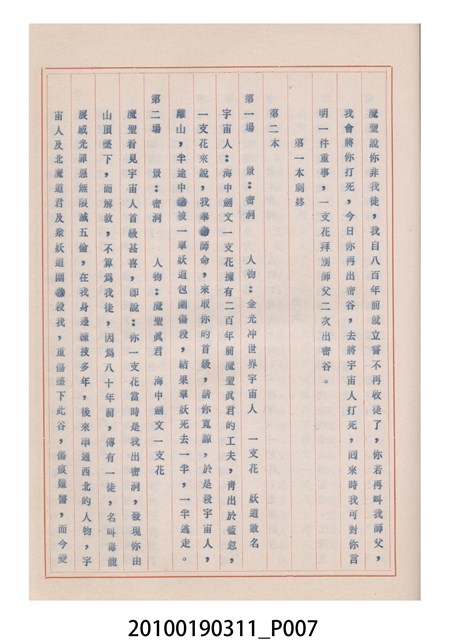 魔聖說你非我徒，我自八百年前就立誓不再收徒了，你若再叫我師父，
我會將你打死，今日你再出密谷，去將宇宙人打死，回來時我可對你言
明一件重事，一支花拜別師父二次出密谷。
第一本劇終
第二本
第一場　景：密洞　人物：金光沖世界宇宙人　一支花　妖道數名
宇宙人：海中劍文一支花擁有二百年前魔聖眞君的工夫，靑出於藍忽，
一支花來說，我奉師命，來取你的首級，請你寬諒，於是殺宇宙人，
離山，半途中被一羣妖道包圍傷殺，結果羣妖死去一半，一半逃走。
第二場　景：密洞　人物：魔聖眞君　海中劍文一支花
魔聖看見宇宙人首級甚喜，卽說：你一支花當時是我出密洞，發現你由
山頂墜下，而解救，不算爲我徒，因爲八十年前，傳有一徒，名叫毒龍
展威光罪惡無展滅五倫，在我身邊練技多年，後來串通西北的人物，宇
宙人及北魔道君及衆妖道圍殺我，重傷墜下此谷，傷痕難醫，而今變
20100190311_P007